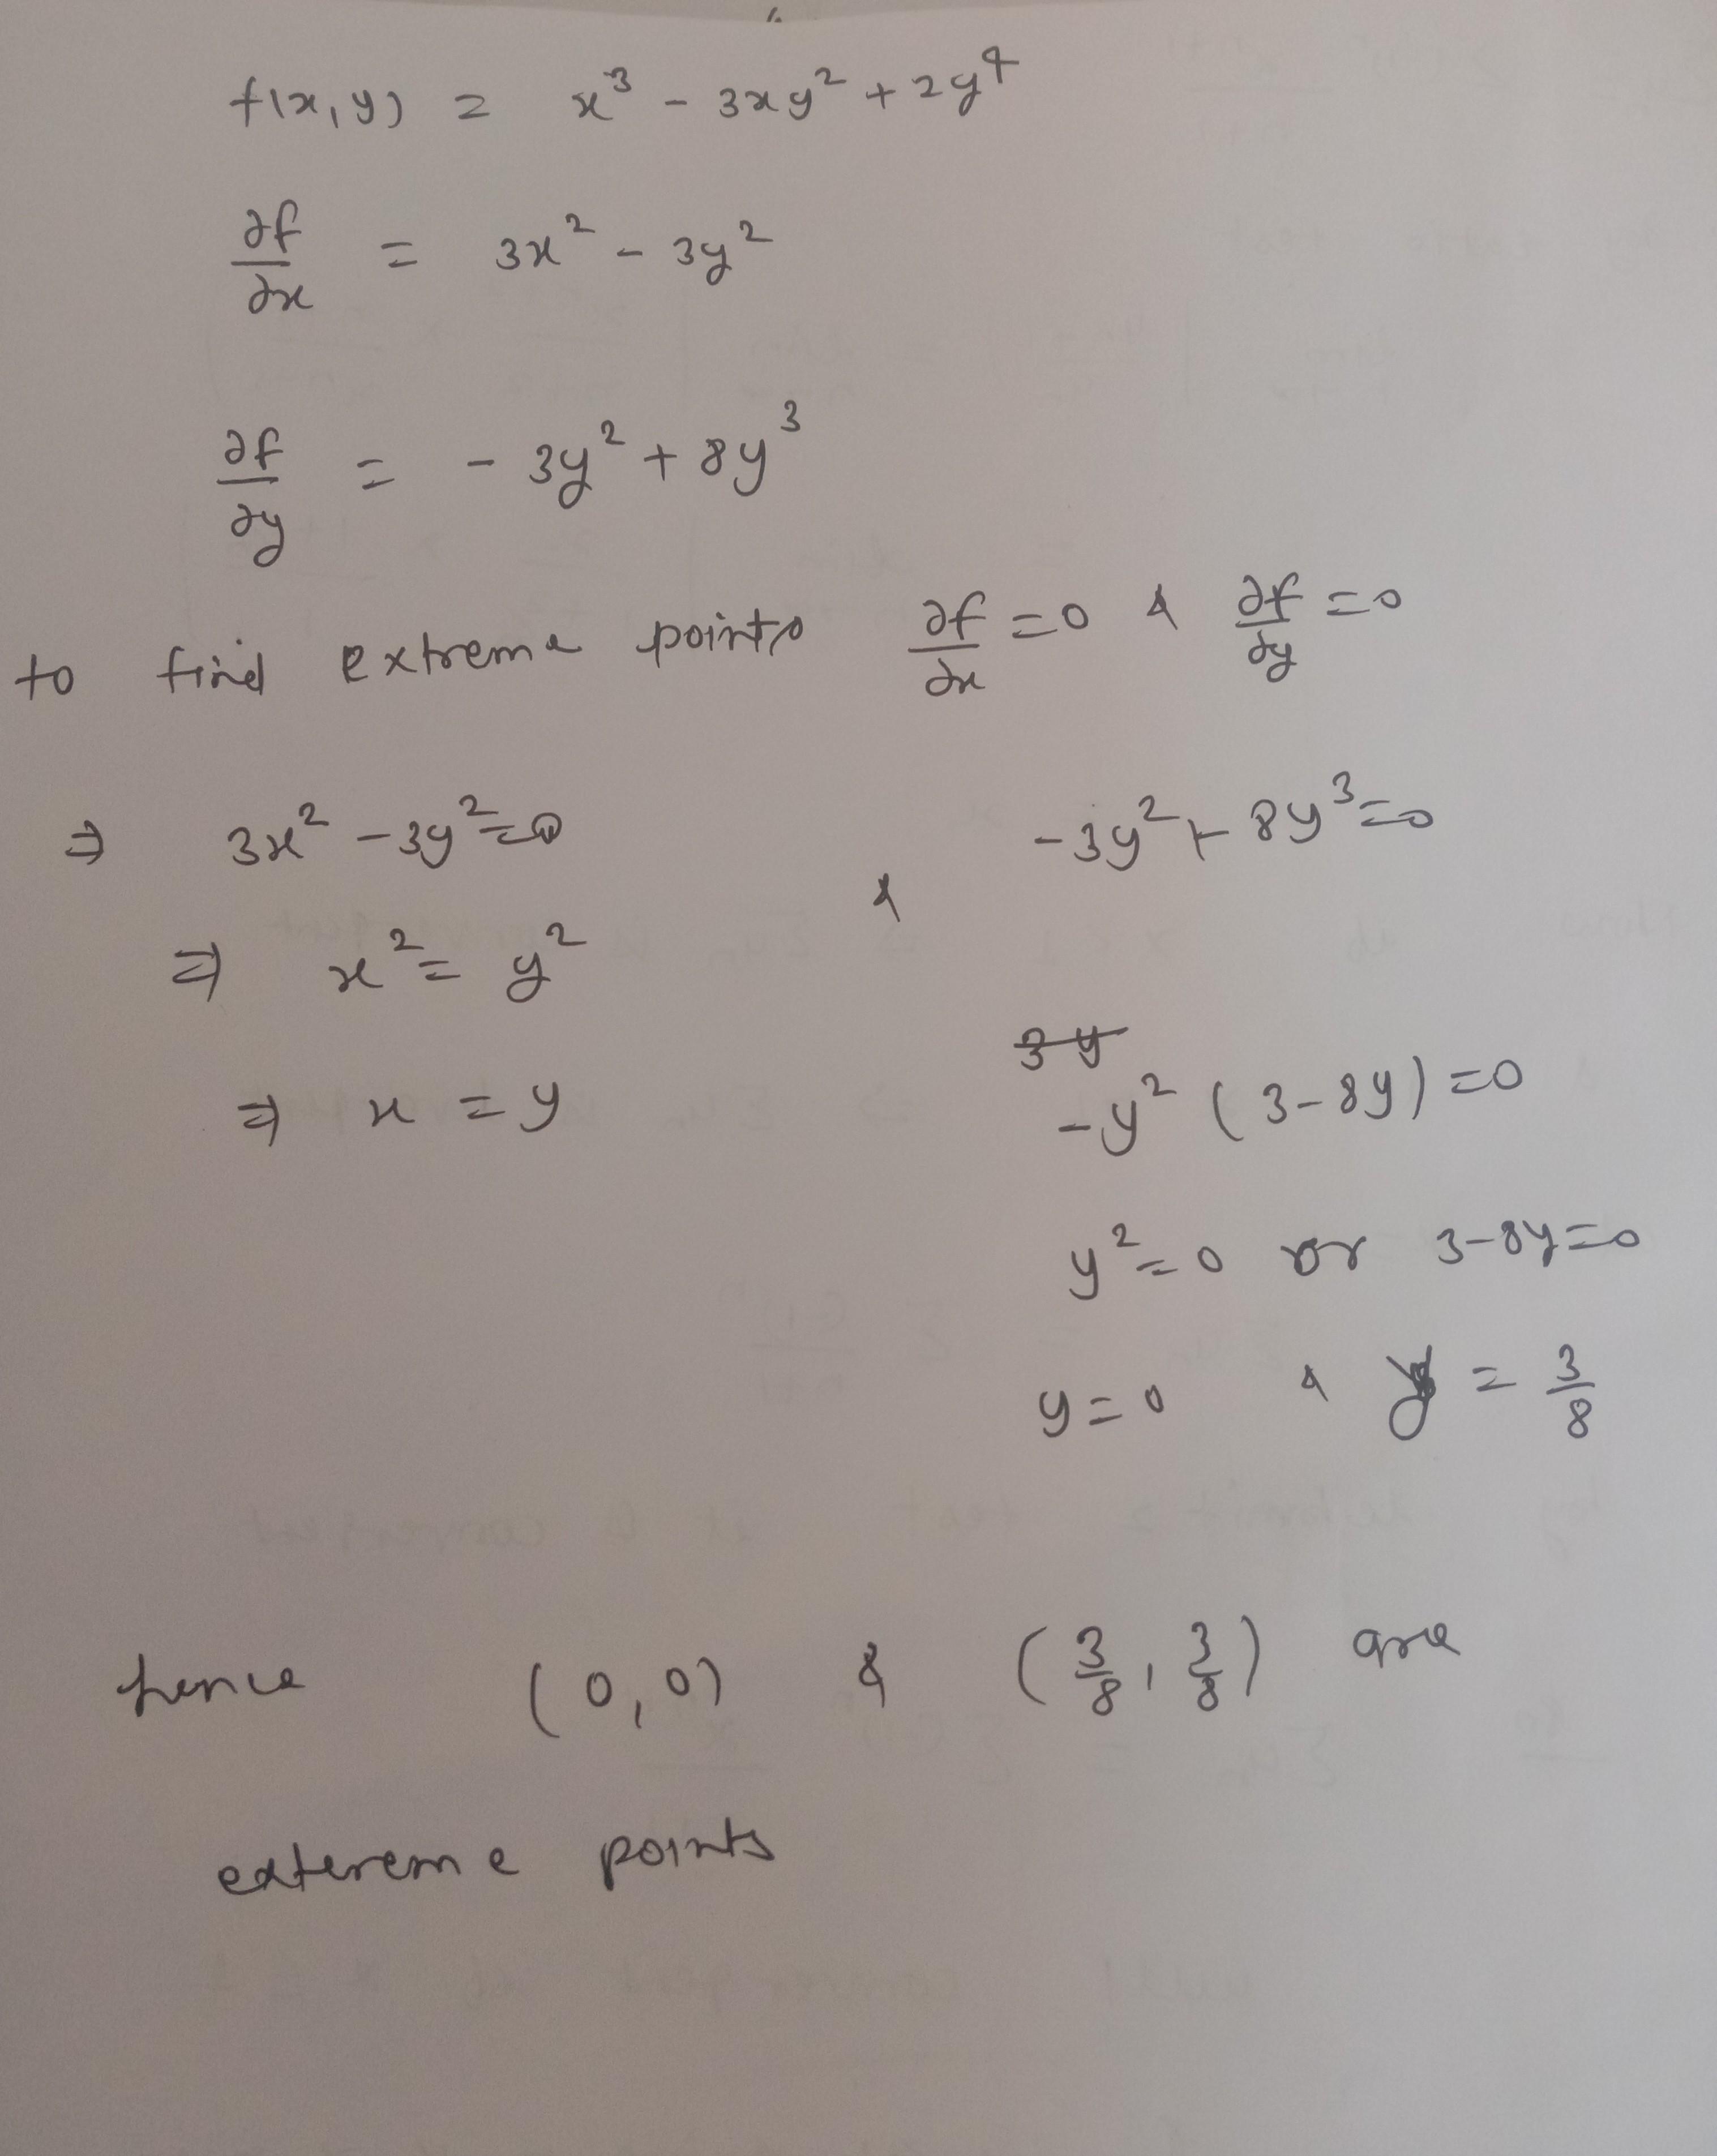 f(x,y) = x³ - 3xy² + 2y⁴
∂f/∂x = 3x² - 3y²
∂f/∂y = - 3y² + 8y³
to find extreme points ∂f/∂x = 0 & ∂f/∂y = 0
⇒ 3x² - 3y² = 0 & -3y² + 8y³ = 0
⇒ x² = y²
3y
⇒ x = y -y² (3-8y) = 0
y² = 0 or 3-8y = 0
y = 0 & y = 3/8
hence (0,0) & (3/8, 3/8) are
extereme points